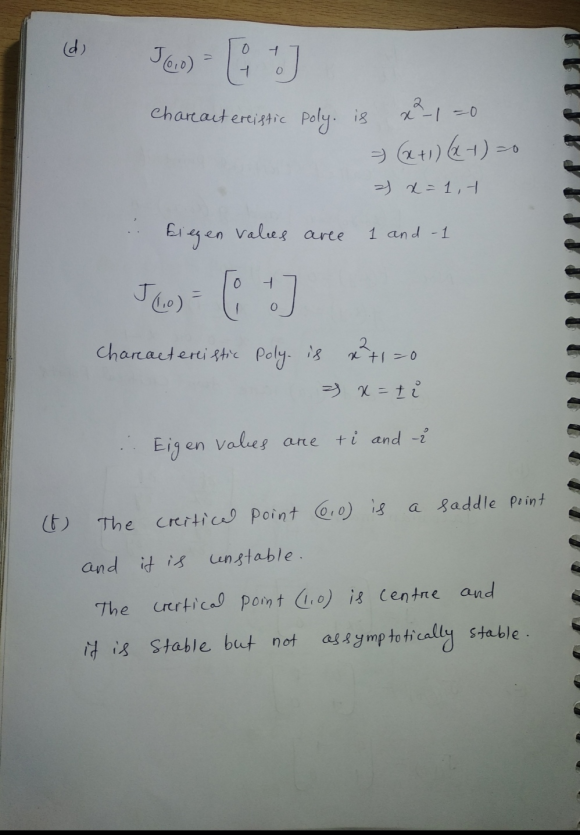 (d) J(0,0) = [0 -1
-1 0]
Charcactercistic Poly. is x²-1 =0
=> (x+1)(x-1)=0
=> x = 1,-1
∴ Eiegen values arce 1 and -1
J(1,0) = [0 -1
1 0]
Charcactercistic Poly. is x²+1=0
=> x = ± i
∴ Eigen values arce +i and -i
The crcitical point (0,0) is a saddle point
and it is unstable.
The crcitical point (1,0) is centre and
it is Stable but not assymptotically stable.